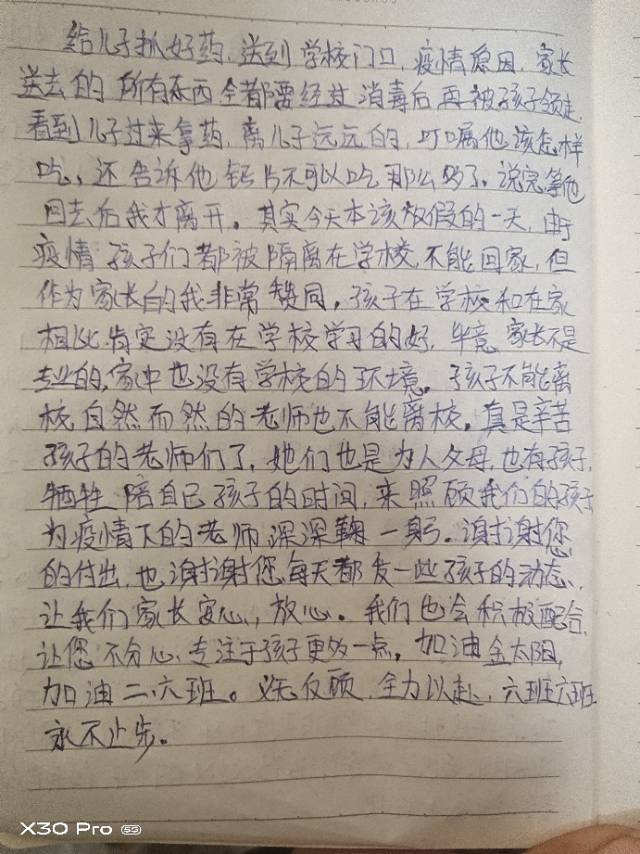 给儿子抓好药，送到学校门口，疫情原因，家长
送去的所有东西全都要经过消毒后再被孩子领走
看到儿子过来拿药，离儿子远远的，叮嘱他该怎样
吃，还告诉他钙片不可以吃那么多了，说完等他
回去后我才离开。其实今天本该放假的一天，由于
疫情孩子们都被隔离在学校，不能回家，但
作为家长的我非常赞同，孩子在学校和在家
相比肯定没有在学校学习的好，毕竟家长不是
专业的，家中也没有学校的环境。孩子不能离
校自然而然的老师也不能离校。真是辛苦
孩子的老师们了，她们也是为人父母，也有孩子，
牺牲陪自己孩子的时间，来照顾我们的孩子
为疫情下的老师深深鞠一躬。谢谢您
的付出，也谢谢您每天都发一些孩子的动态，
让我们家长安心，放心。我们也会积极配合，
让您不分心，专注于孩子更多一点。加油金太阳，
加油二.六班。义无反顾，全力以赴，六班六班
永不止步。
X30 Pro 5G